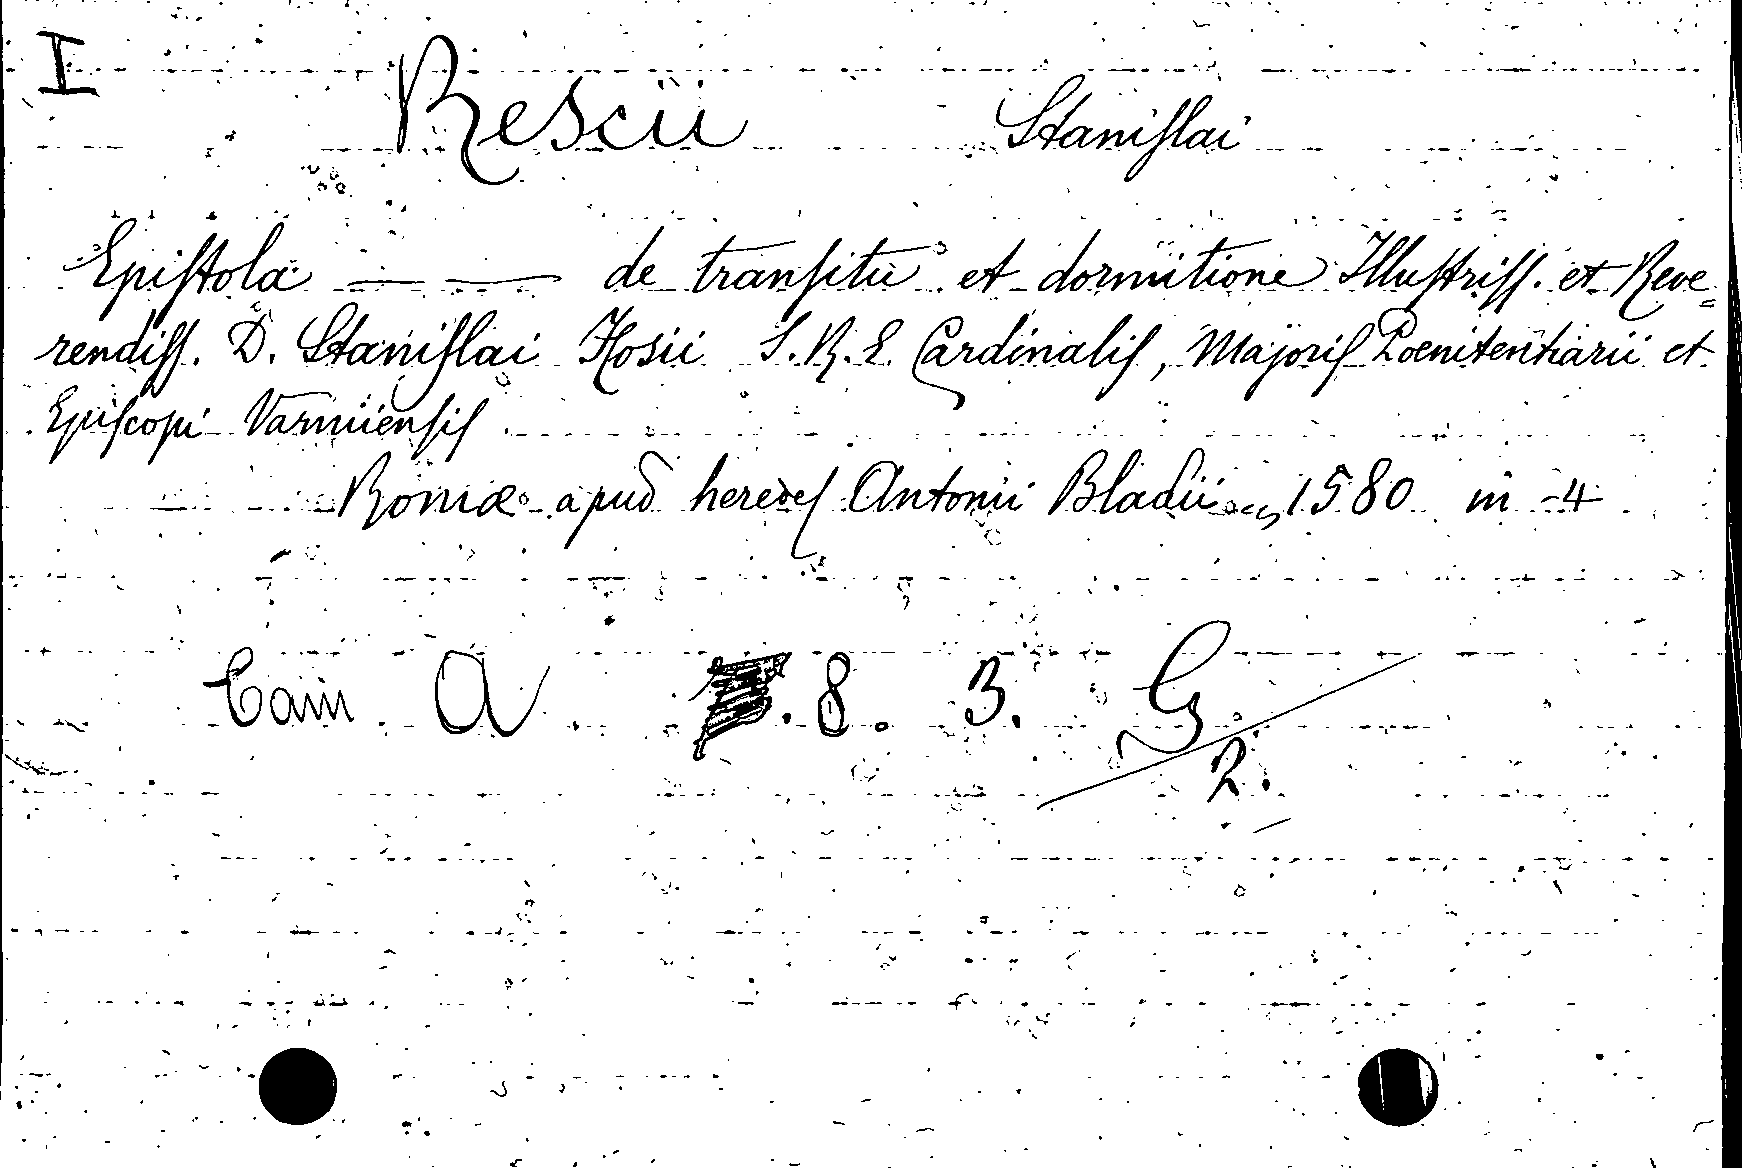 I
Rescii Stanislai
Epistola — — de transitu et dormitione Illustriss. et Reve=
rendiss. D. Stanislai Hosii S. R. E. Cardinalis, Majoris Poenitentiarii et
Episcopi Varmiensis
Romæ apud heredes Antonii Bladii 1580 in -4
Cam A .8. 3. G
2.